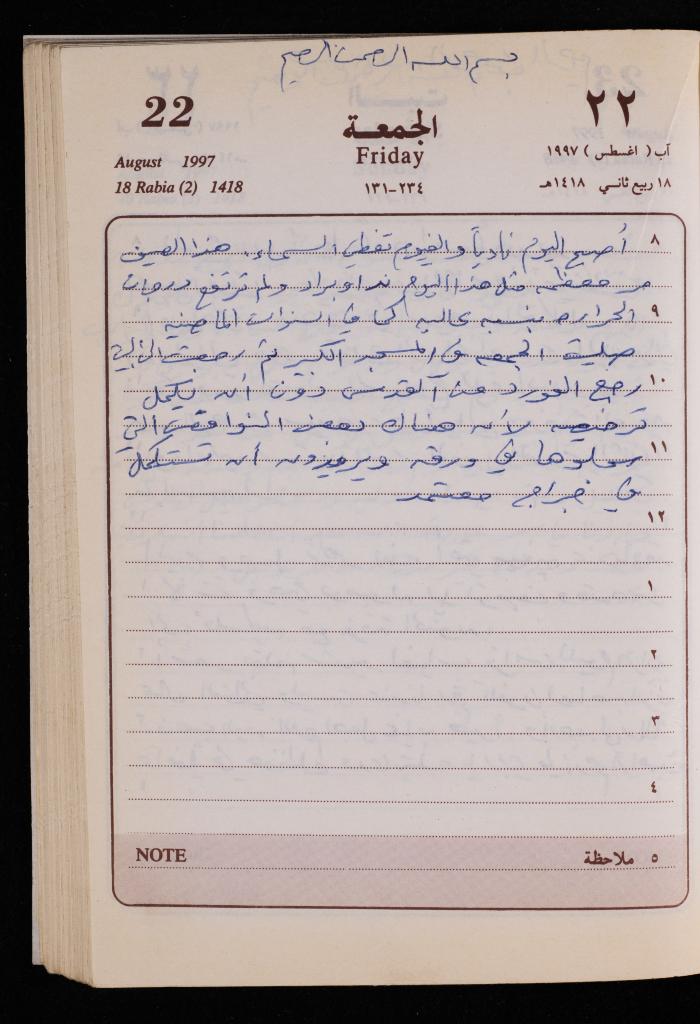 بسم الله الرحمن الرحيم
22
٢٢
الجمعة
Friday
August 1997
آب ( اغسطس ) ١٩٩٧
18 Rabia (2) 1418
١٨ ربيع ثاني ١٤١٨هـ
١٣١-٢٣٤
٨ أصبح اليوم نادياً والغيوم تغطي السماء. هذا الصيف
معظمه مثل هذا اليوم ولم ترتفع درجات
٩ الحراره بنسبه عاليه كما في السنوات الماضيه
صليت الجمعه في المسجد الكبير ثم رجعت الى البيت
١٠ رجع الفورد من القدس دون أن يكمل
ترخيصه لأن هناك بعض النواقص التي
١١ سجلوها في ورقه ويريدون أن تستكمل
في كراج معتمد
١٢
١
٢
٣
٤
NOTE
٥ ملاحظة